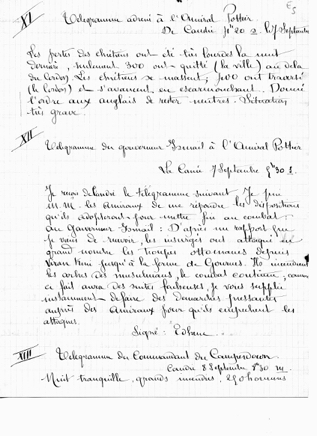 XI
Télégramme adressé à l'Amiral Pottier.
De Candie, 2 s. le 7 Septembre
Les pertes des chrétiens ont été très lourdes la nuit
dernière, seulement 300 ont quitté (la ville) au delà
du Cordon. Les chrétiens se massent, 400 ont traversé
(le Cordon) et s'avancent en escarmouchant. Donné
l'ordre aux anglais de rester neutres. Situation
très grave.
XII
Télégramme du gouverneur Ismail à l'Amiral Pottier
La Canée 7 Septembre 30 s.
Je reçois de Candie le télégramme suivant. Je prie
M.M. les Amiraux de me répondre les dispositions
qu'ils adopteront pour mettre fin au combat.
Au Gouverneur Ismail : D'après un rapport que
Je viens de recevoir, les insurgés ont attaqué en
grand nombre les troupes Ottomanes depuis
jusqu'à la ferme de Ils incendient
les des musulmans, le combat continue, comme
ce fait aura des suites fâcheuses, je vous supplie
instamment de faire des démarches pressantes
auprès des Amiraux pour qu'ils empêchent les
attaques.
Signé : Edhem
XIII
Télégramme du Commandant du Camperdown
Candie 8 Septembre 30 m.
Nuit tranquille, grands incendies, 250 hommes